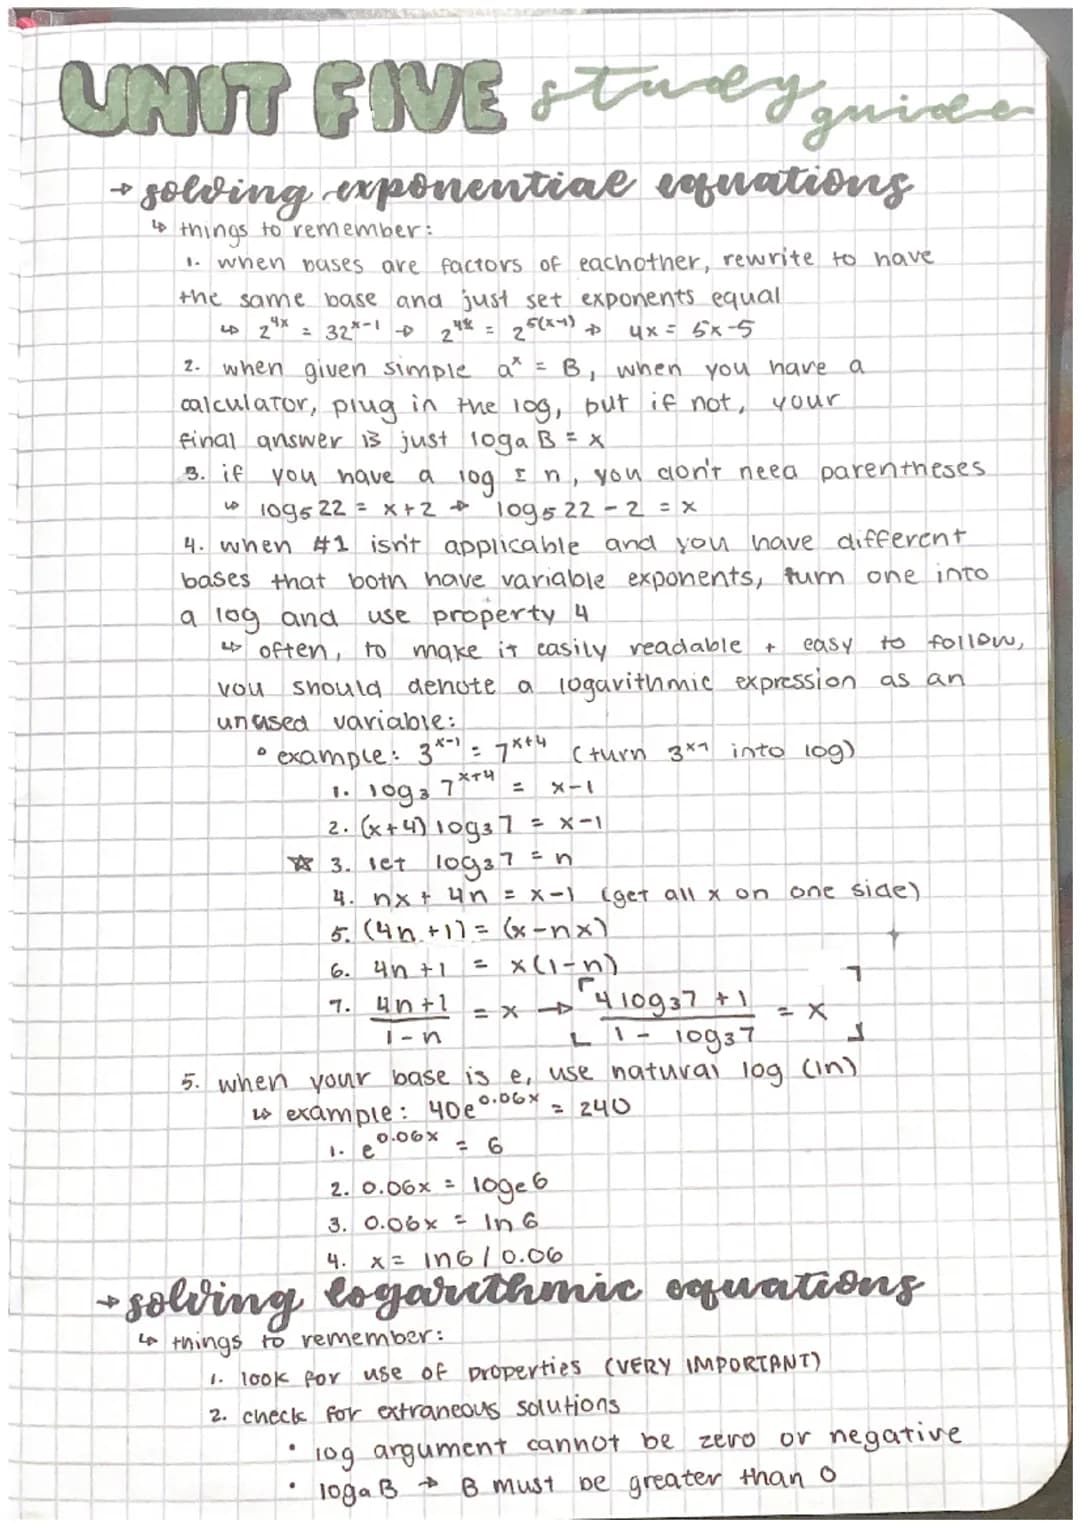 UNIT FIVE study guide
→ solving exponential equations
↳ things to remember:
1. when bases are factors of eachother, rewrite to have
the same base and just set exponents equal
↳ 2^4x = 32^x-1 → 2^4x = 2^5(x-1) → 4x = 5x-5
2. when given simple a^x = B, when you have a
calculator, plug in the log, but if not, your
final answer is just logₐB = x
3. if you have a log ± n, you don't need parentheses
↳ log₅22 = x+2 → log₅22 - 2 = x
4. when #1 isn't applicable and you have different
bases that both have variable exponents, turn one into
a log and use property 4
↳ often, to make it easily readable + easy to follow,
you should denote a logarithmic expression as an
unused variable:
° example: 3^x-1 = 7^x+4 (turn 3^x-1 into log)
1. log₃7^x+4 = x-1
2. (x+4)log₃7 = x-1
☆ 3. let log₃7 = n
4. nx + 4n = x-1 (get all x on one side)
5. (4n+1) = (x-nx)
6. 4n+1 = x(1-n)
7. (4n+1)/(1-n) = x → [(4log₃7 + 1)/(1 - log₃7) = x]
5. when your base is e, use natural log (ln)
↳ example: 40e^0.06x = 240
1. e^0.06x = 6
2. 0.06x = logₑ6
3. 0.06x = ln 6
4. x = ln6 / 0.06
→ solving logarithmic equations
↳ things to remember:
1. look for use of properties (VERY IMPORTANT)
2. check for extraneous solutions
• log argument cannot be zero or negative
• logₐB → B must be greater than 0